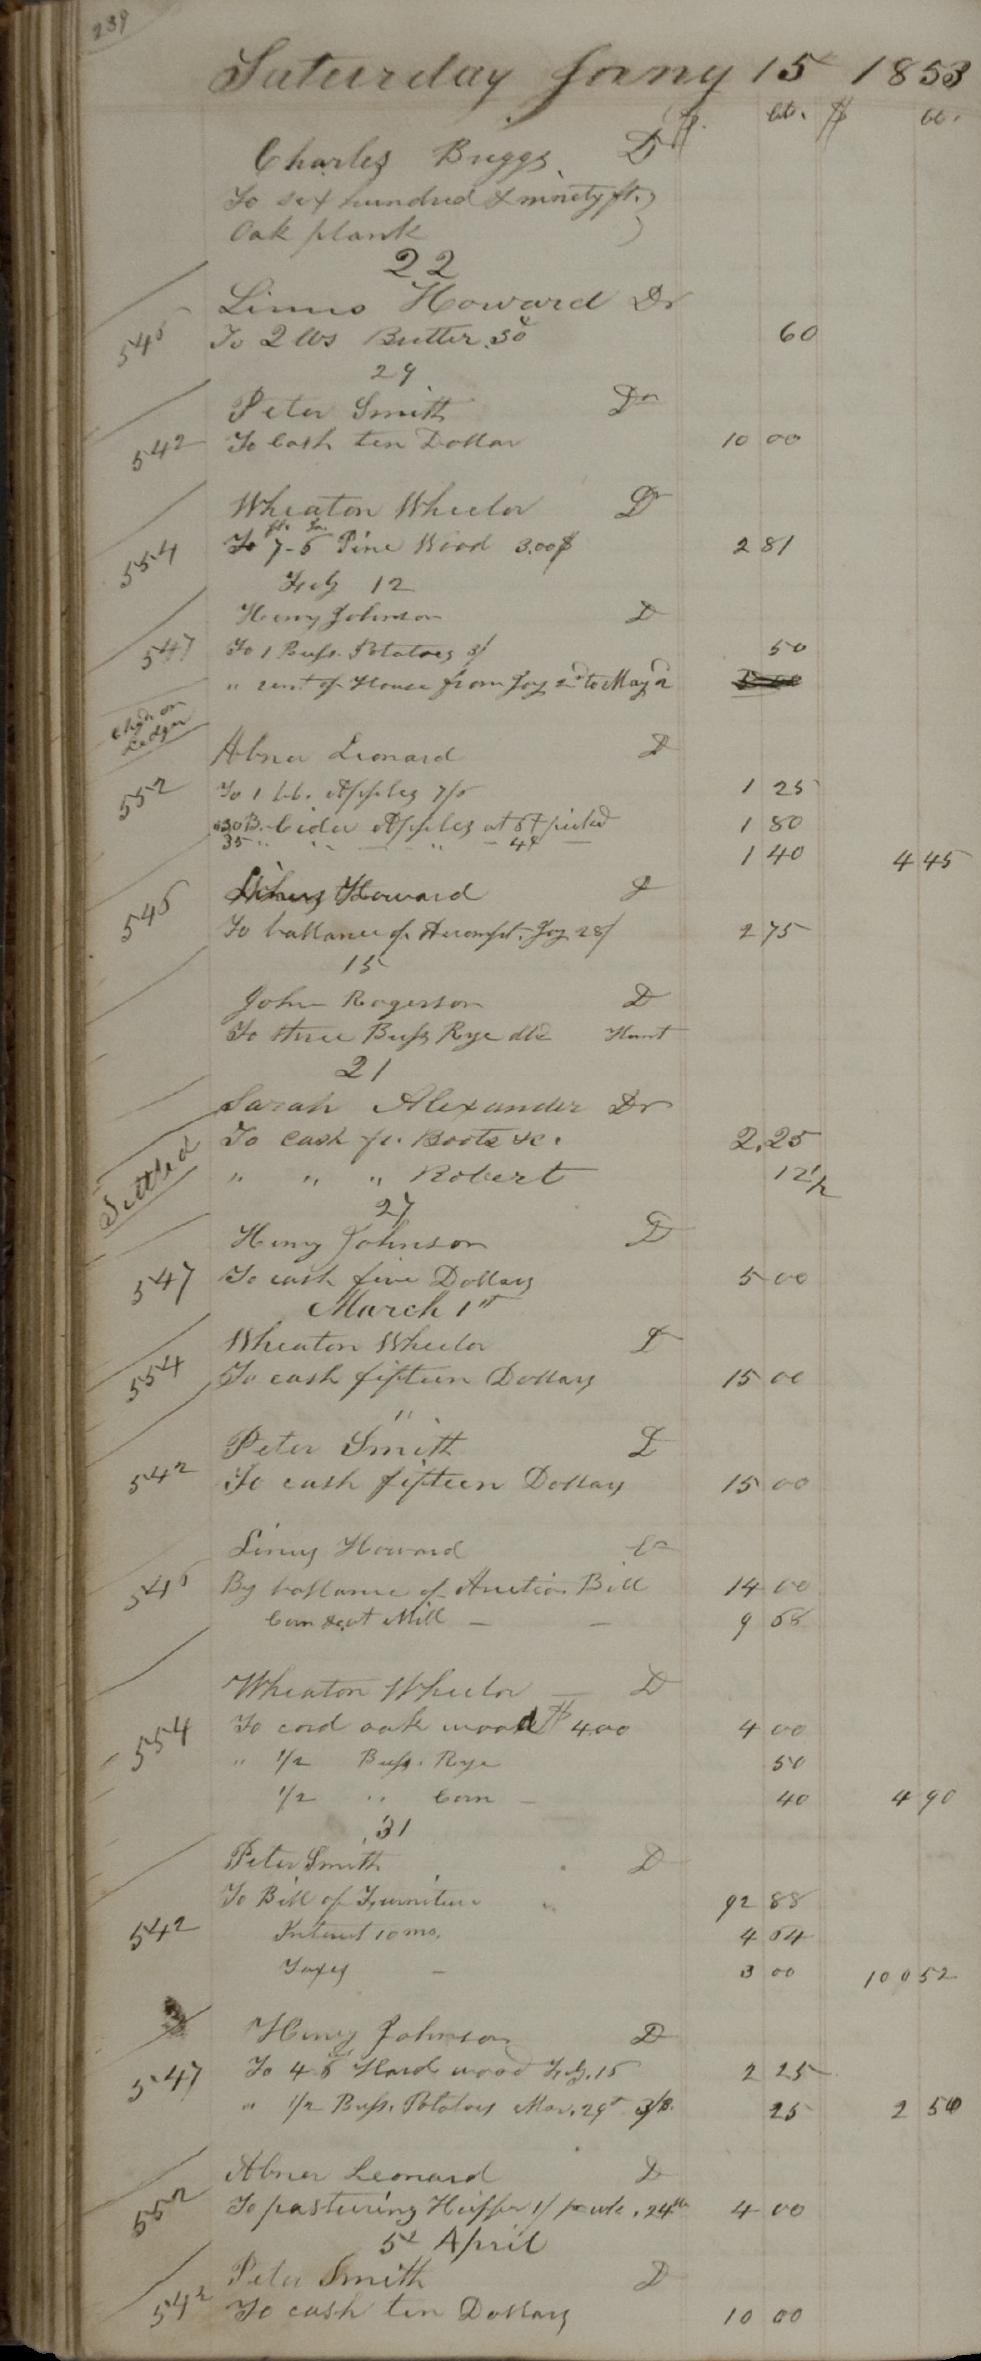 239
Saturday Jany 15 1853
$. cts. $ cts.
Charles Briggs Dr
To six hundred & ninety ft.
Oak plank
22
Linus Howard Dr
546 To 2 lbs Butter 30 60
29
Peter Smith Dr
542 To Cash ten Dollar 10 00
Wheaton Wheelor Dr
ft. in.
554 To 7-6 Pine Wood 3.00$ 2 81
Feb 12
Henry Johnson D
547 To 1 Bush. Potatoes 3/ 50
" rent of House from Jay 2nd to May 2
Chgd on
Ledger
Abner Leonard D
552 To 1 bb. Apples 7/6 1 25
" 30 B. Cider Apples at 6¢ picked 1 80
35 " " — " — 4¢ — 1 40 4 45
Linus Howard D
546 To ballance of Accompt. Jay 28/ 2 75
15
John Rogerson D
To three Bush Rye dld Hunt
21
Sarah Alexander Dr
Settled To Cash for Boots &c. 2.25
" " " Robert 12 1/2
27
Henry Johnson D
547 To cash five Dollars 5 00
March 1st
Wheaton Wheelor D
554 To cash fifteen Dollars 15 00
"
Peter Smith D
542 To cash fifteen Dollars 15 00
Linus Howard Cr
546 By ballance of Auction Bill 14 00
Corn &c at Mill — — 9 68
Wheaton Wheelor — D
554 To cord oak wood $4.00 4 00
" 1/2 Bush. Rye 50
1/2 " Corn — 40 4 90
31
Peter Smith D
To Bill of Furniture 92 88
542 Interest 10 mo. 4 64
Taxes — 3 00 100 52
Henry Johnson D
547 To 4-6 Hard wood Feb. 15 2 25
" 1/2 Bush. Potatoes Mar. 29th 3/ 25 2 50
Abner Leonard D
552 To pasturing Heiffer 1/ pr wk. 24th 4 00
5th April
Peter Smith D
542 To cash ten Dollars 10 00